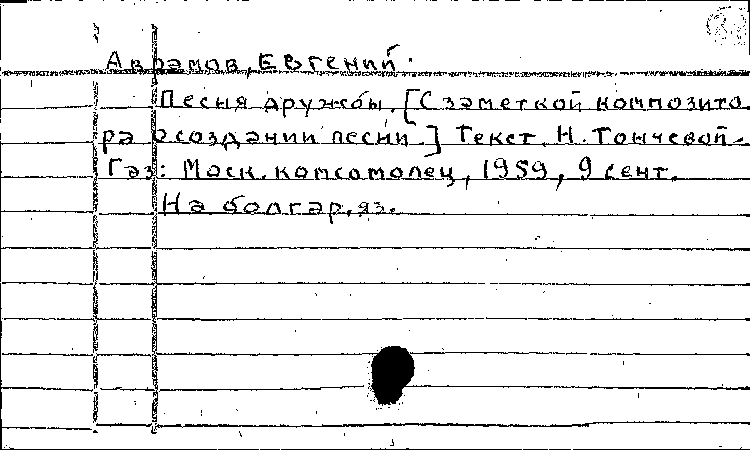 Аврамов, Евгений.
Песня дружбы. [С заметкой композито
ра о создании песни.] Текст. Н. Тончевой.
Газ: Моск. комсомолец, 1959, 9 сент.
На болгар. яз.